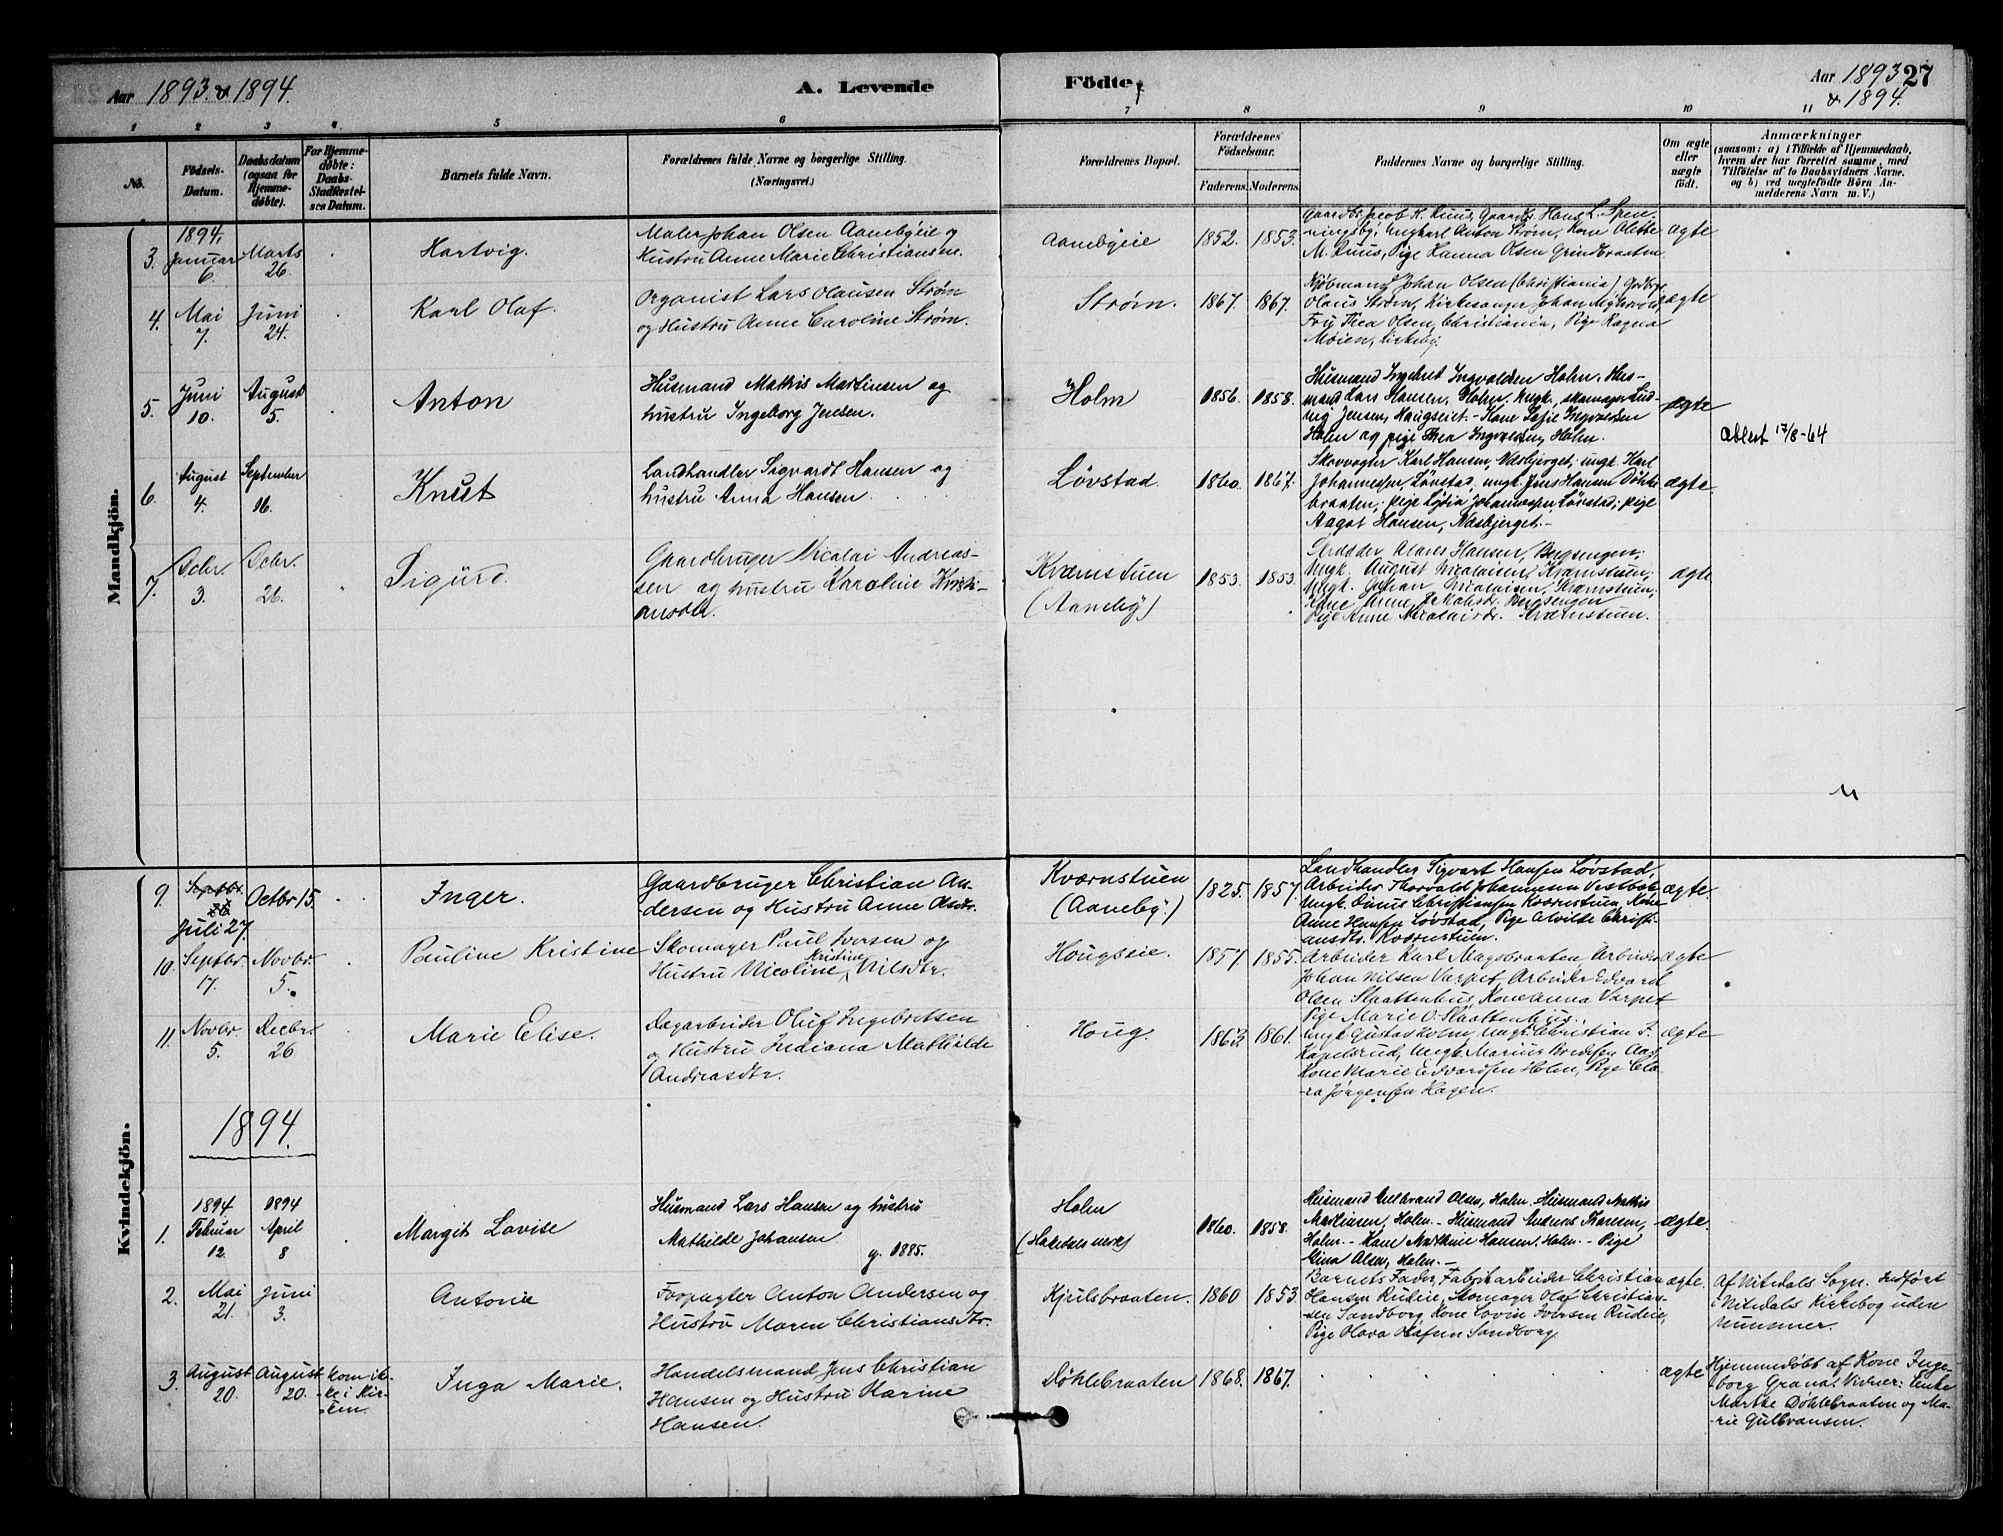 Aar 1893 & 1894.
A. Levende
Fødte,
Aar 1893 27
& 1894.
1 2 3 4 5 6 7 8 9 10 11
No.
Födsels-
Datum.
Daabsdatum
(ogsaa for
Hjemme-
døbte).
For Hjemme-
døbte:
Daabs-
Stadfæstel-
ses Datum.
Barnets fulde Navn.
Forældrenes fulde Navne og borgerlige Stilling.
(Næringsvei.)
Forældrenes Bopæl.
Forældrenes
Fødselsaar.
Faderens. Moderens.
Faddernes Navne og borgerlige Stilling.
Om ægte
eller
uægte
født.
Anmærkninger
(saasom: a) i Tilfælde af Hjemmedaab,
hvem der har forrettet samme, med
Tilføielse af to Daabsvidners Navne.
og b) ved uegtefødte Börn An-
melderens Navn m. V.)
Mandkjön.
3.
1894.
Januar
6.
Marts
26.
Hartvig.
Maler Johan Olsen Aanebyeie og
Hustru Anne Marie Christiansen.
Aanebyeie
1852. 1853.
Gaardbr. Jacob K. Ruus, Gaardbr. Hans L. Spen-
ningsby, Ungkarl Anton Strøm, Kone Olette
M. Ruus, Pige Hanna Olsen Grindbraaten
ægte
4.
Mai
7.
Juni
24.
Karl Olaf.
Organist Lars Olausen Strøm
og Hustru Anne Caroline Strøm.
Strøm.
1867. 1867.
Kjøbmand Johan Olsen (Christiania)
Olaus Strøm, Kirkesanger Johan
Frу Thea Olsen, Christiania, Pige Ragna
Moien, Kirkeby.
ægte
5.
Juni
10.
August
5.
Anton
Husmand Mathis Martinsen og
hustru Ingeborg Jensen.
Holm
1856. 1858.
Husmand Ingebret Ingvaldsen Holm. Hus-
mand Lars Hansen, Holm. Ungk., skomager Lud-
vig Jensen, Haugseiet. - Kone Sofie Ingvaldsen
Holm og pige Thea Ingvaldsen, Holm.
ægte
Attest 17/8-64
6.
August
4.
September
16.
Knut
Landhandler Sigvardt Hansen og
hustru Anna Hansen.
Løvstad.
1860. 1867.
Skovvogter Karl Hansen, Næsbjerget; ungk. Karl
Johannessen Løvstad, ungk. Jens Hansen Døhle-
braaten; pige Lydia Johannessen Løvstad; pige
Aagot Hansen, Næsbjerget. -
ægte.
7.
Octbr.
3.
Decbr.
26.
Sigurd.
Gaardbruger Nicolai Andreas-
sen og hustru Karoline Kristi-
ansdtr.
Kværnstuen
(Aaneby)
1853. 1853.
Skrædder Hansen, Bergsengen;
Ungk. August Nicolaisen, Kværnstuen;
Ungk. Johan Nicolaisen, Kværnstuen;
Kone Anne Jakobsdr. Bergsengen
Pige Anne Nicolaisdr. Kværnstuen.
ægte
Kvindekjön.
9.
Septbr.
Juli 27.
Octbr 15.
Inger.
Gaardbruger Christian An-
dersen og Hustru Anne
Kværnstuen
(Aaneby.)
1825. 1857.
Landhandler Sigvart Hansen Løvstad,
Arbeider Thorvald Johannesen
Ungk. Christiansen Kværnstuen, Kone
Anne Hansen Løvstad, Pige Alvilde Christi-
ansdtr. Kværnstuen.
ægte.
10.
Septbr.
17.
Novbr.
5.
Pauline Kristine
Skomager Paul Iversen og
Kristine
Hustru Nicoline Nilsdtr.
Hougseie.
1857. 1855.
Arbeider Karl Magsbraaten, Arbeider
Johan Nilsen Varpet, Arbeider Edvard
Olsen Slaattenhus, Kone Anna Varpet
Pige Marie O. Slaattenhus.
ægte
11.
Novbr.
5.
Decbr.
26
Marie Elise.
Dagarbeider Oluf Ingebretsen
og Hustru Indiana Mathilde
Andreasdtr.
Houg.
1863. 1861.
Ungk. Gustav Holm, Ungk. Christian F.
Kapelsrud, Ungk. Marius Aas,
Kone Marie Edvardsen Holm, Pige Cla-
ra Jørgensen Hagen.
ægte
1894.
1.
1894
Februar
12.
1894
April
8
Margit Lovise
Husmand Lars Hansen og hustru
Mathilde Johansen
g. 1885.
Holm
(Hakedals verk)
1860. 1858.
Husmand Gulbrand Olsen, Holm. Husmand Mathis
Martinsen, Holm. - Husmand Anders Hansen,
Holm. - Kone Mathine Hansen, Holm. - Pige
Gina Olsen, Holm. -
ægte.
2.
Mai
21.
Juni
3.
Antonie
Forpagter Anton Andersen og
Hustru Maren Christiansdtr.
Kjulsbraaten.
1860 1853
Barnets Fader, Fabrikarbeider Christian
Hansen Rudeie, Skomager Olaf Christian-
sen Sandborg, Kone Lovise Iversen Rudeie,
Pige Olava Olafsen Sandborg.
ægte.
Af Nitedals Sogn. Indført
i Nitedals Kirkebog uden
Nummer.
3.
August
20.
August
20.
kom ik-
ke i Kir-
ken.
Inga Marie.
Handelsmand Jens Christian
Hansen og Hustru Karine
Hansen.
Døhlebraaten
1868. 1867.
ægte
Hjemmedøbt af Kone Inge-
borg Grana, Vidner: Enke
Marthe Døhlebraaten og Ma-
rie Gulbransen.